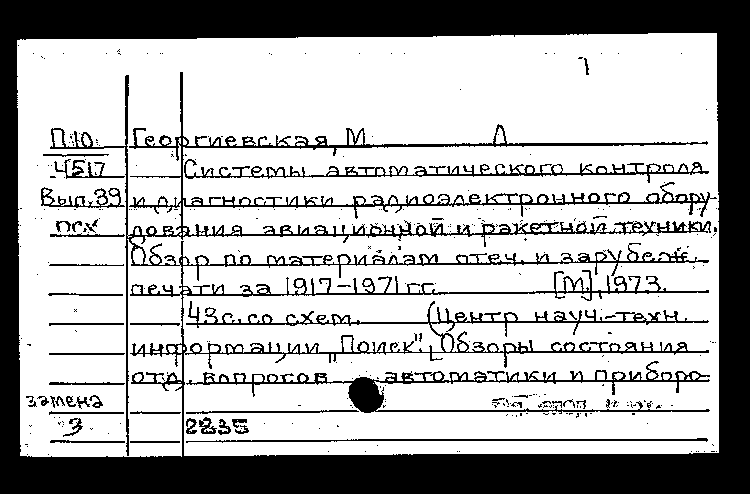 П10 Георгиевская, М Л
4517 Системы автоматического контроля
Вып.39 и диагностики радиоэлектронного обору-
псх дования авиационной и ракетной техники.
Обзор по материалам отеч. и зарубеж.
печати за 1917-1971 гг. [М], 1973.
43с. со схем. (Центр науч.-техн.
информации "Поиск". Обзоры состояния
отд. вопросов автоматики и приборо-
замена
3 2835